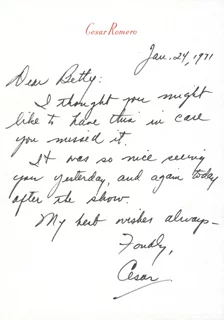 Cesar Romero
Jan. 24, 1971
Dear Betty:
I thought you might
like to have this in case
you missed it.
It was so nice seeing
you yesterday, and again today
after the show.
My best wishes always—
Fondly,
Cesar